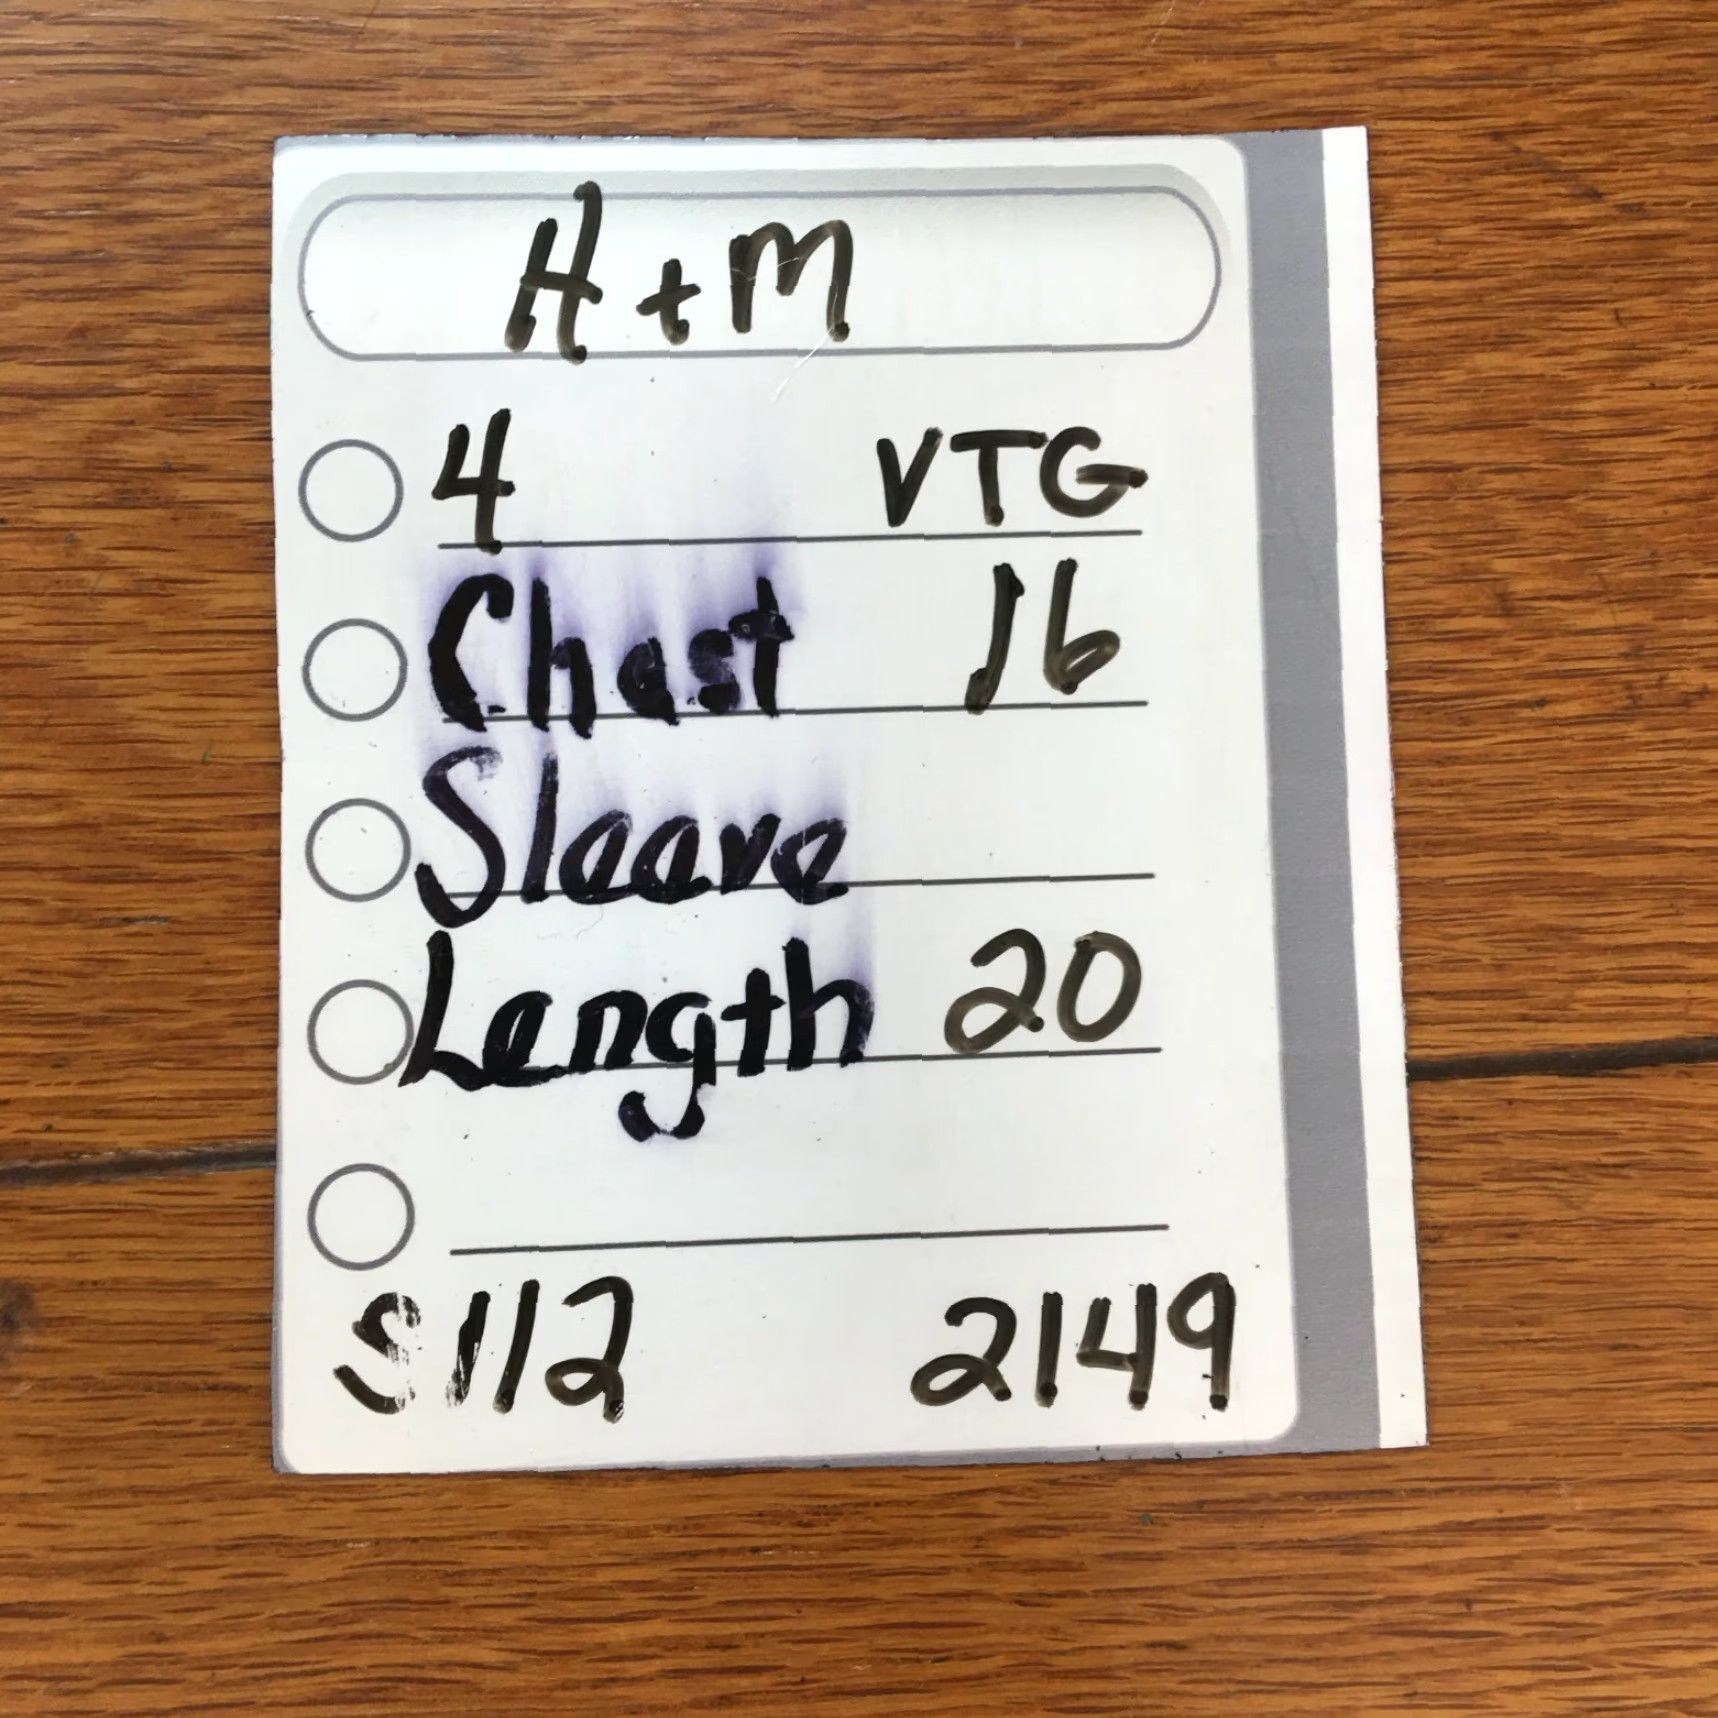 H+M
4 VTG
Chest 16
Sleeve
Length 20
S112 2149